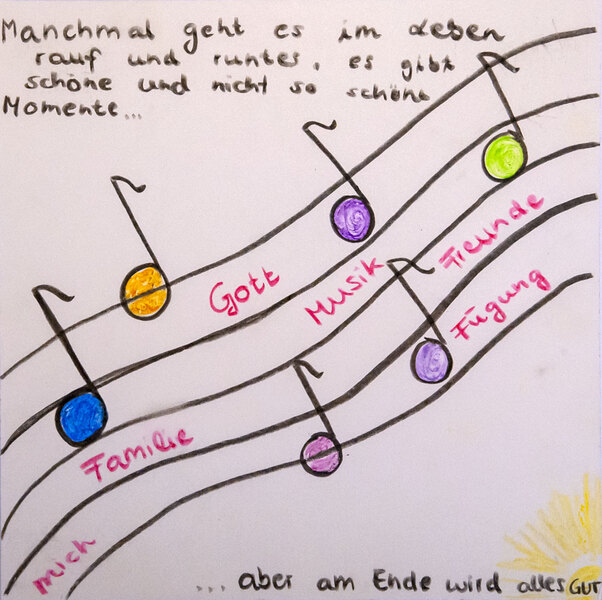 Manchmal geht es im Leben
rauf und runter, es gibt
schöne und nicht so schöne
Momente...
Gott
Musik
Freunde
Fügung
Familie
mich
... aber am Ende wird alles Gut